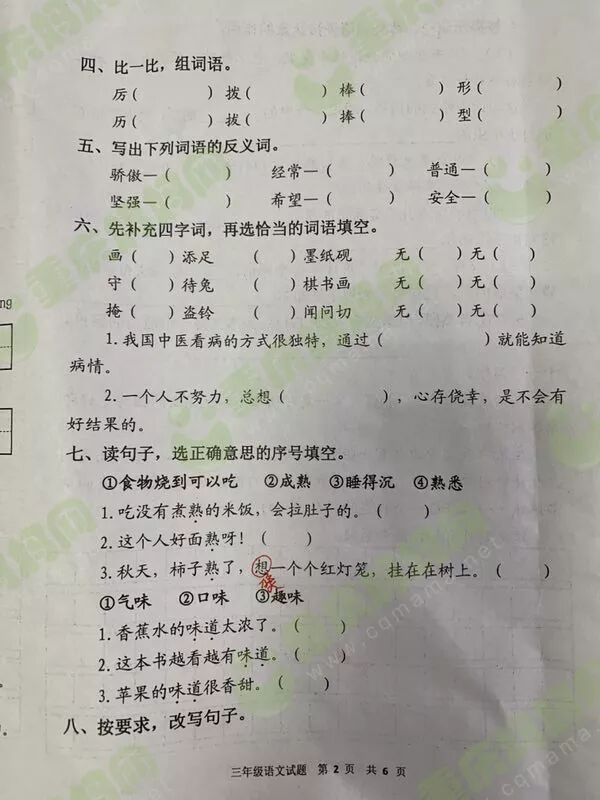 四、比一比，组词语。
厉（ ）拨（ ）棒（ ）形（ ）
历（ ）拔（ ）捧（ ）型（ ）
五、写出下列词语的反义词。
骄傲—（ ） 经常—（ ） 普通—（ ）
坚强—（ ） 希望—（ ） 安全—（ ）
六、先补充四字词，再选恰当的词语填空。
画（ ）添足 （ ）墨纸砚 无（ ）无（ ）
守（ ）待兔 （ ）棋书画 无（ ）无（ ）
掩（ ）盗铃 （ ）闻问切 无（ ）无（ ）
1.我国中医看病的方式很独特，通过（ ）就能知道
病情。
2.一个人不努力，总想（ ），心存侥幸，是不会有
好结果的。
七、读句子，选正确意思的序号填空。
①食物烧到可以吃 ②成熟 ③睡得沉 ④熟悉
1.吃没有煮熟的米饭，会拉肚子的。（ ）
2.这个人好面熟呀！（ ）
3.秋天，柿子熟了，想一个个红灯笼，挂在在树上。（ ）
像
①气味 ②口味 ③趣味
1.香蕉水的味道太浓了。（ ）
2.这本书越看越有味道。（ ）
3.苹果的味道很香甜。（ ）
八、按要求，改写句子。
三年级语文试题 第 2 页 共 6 页
ng
重庆妈妈网
www.cqmama.net